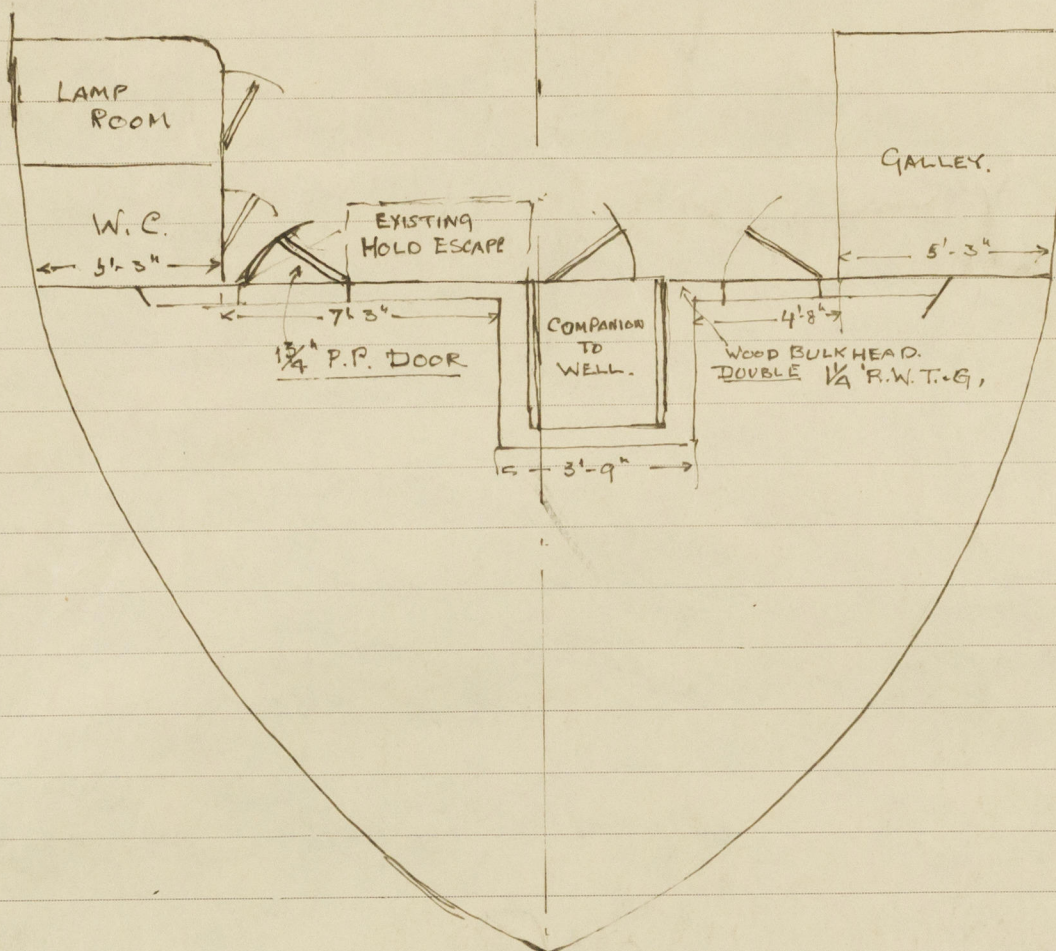 LAMP
ROOM
W.C.
5'-3"
EXISTING
HOLD ESCAPE
GALLEY.
5'-3"
7'-3"
1 3/4" P.P. DOOR
COMPANION
TO
WELL.
4'-8"
WOOD BULKHEAD.
DOUBLE 1 1/4" R.W.T.&G,
3'-9"